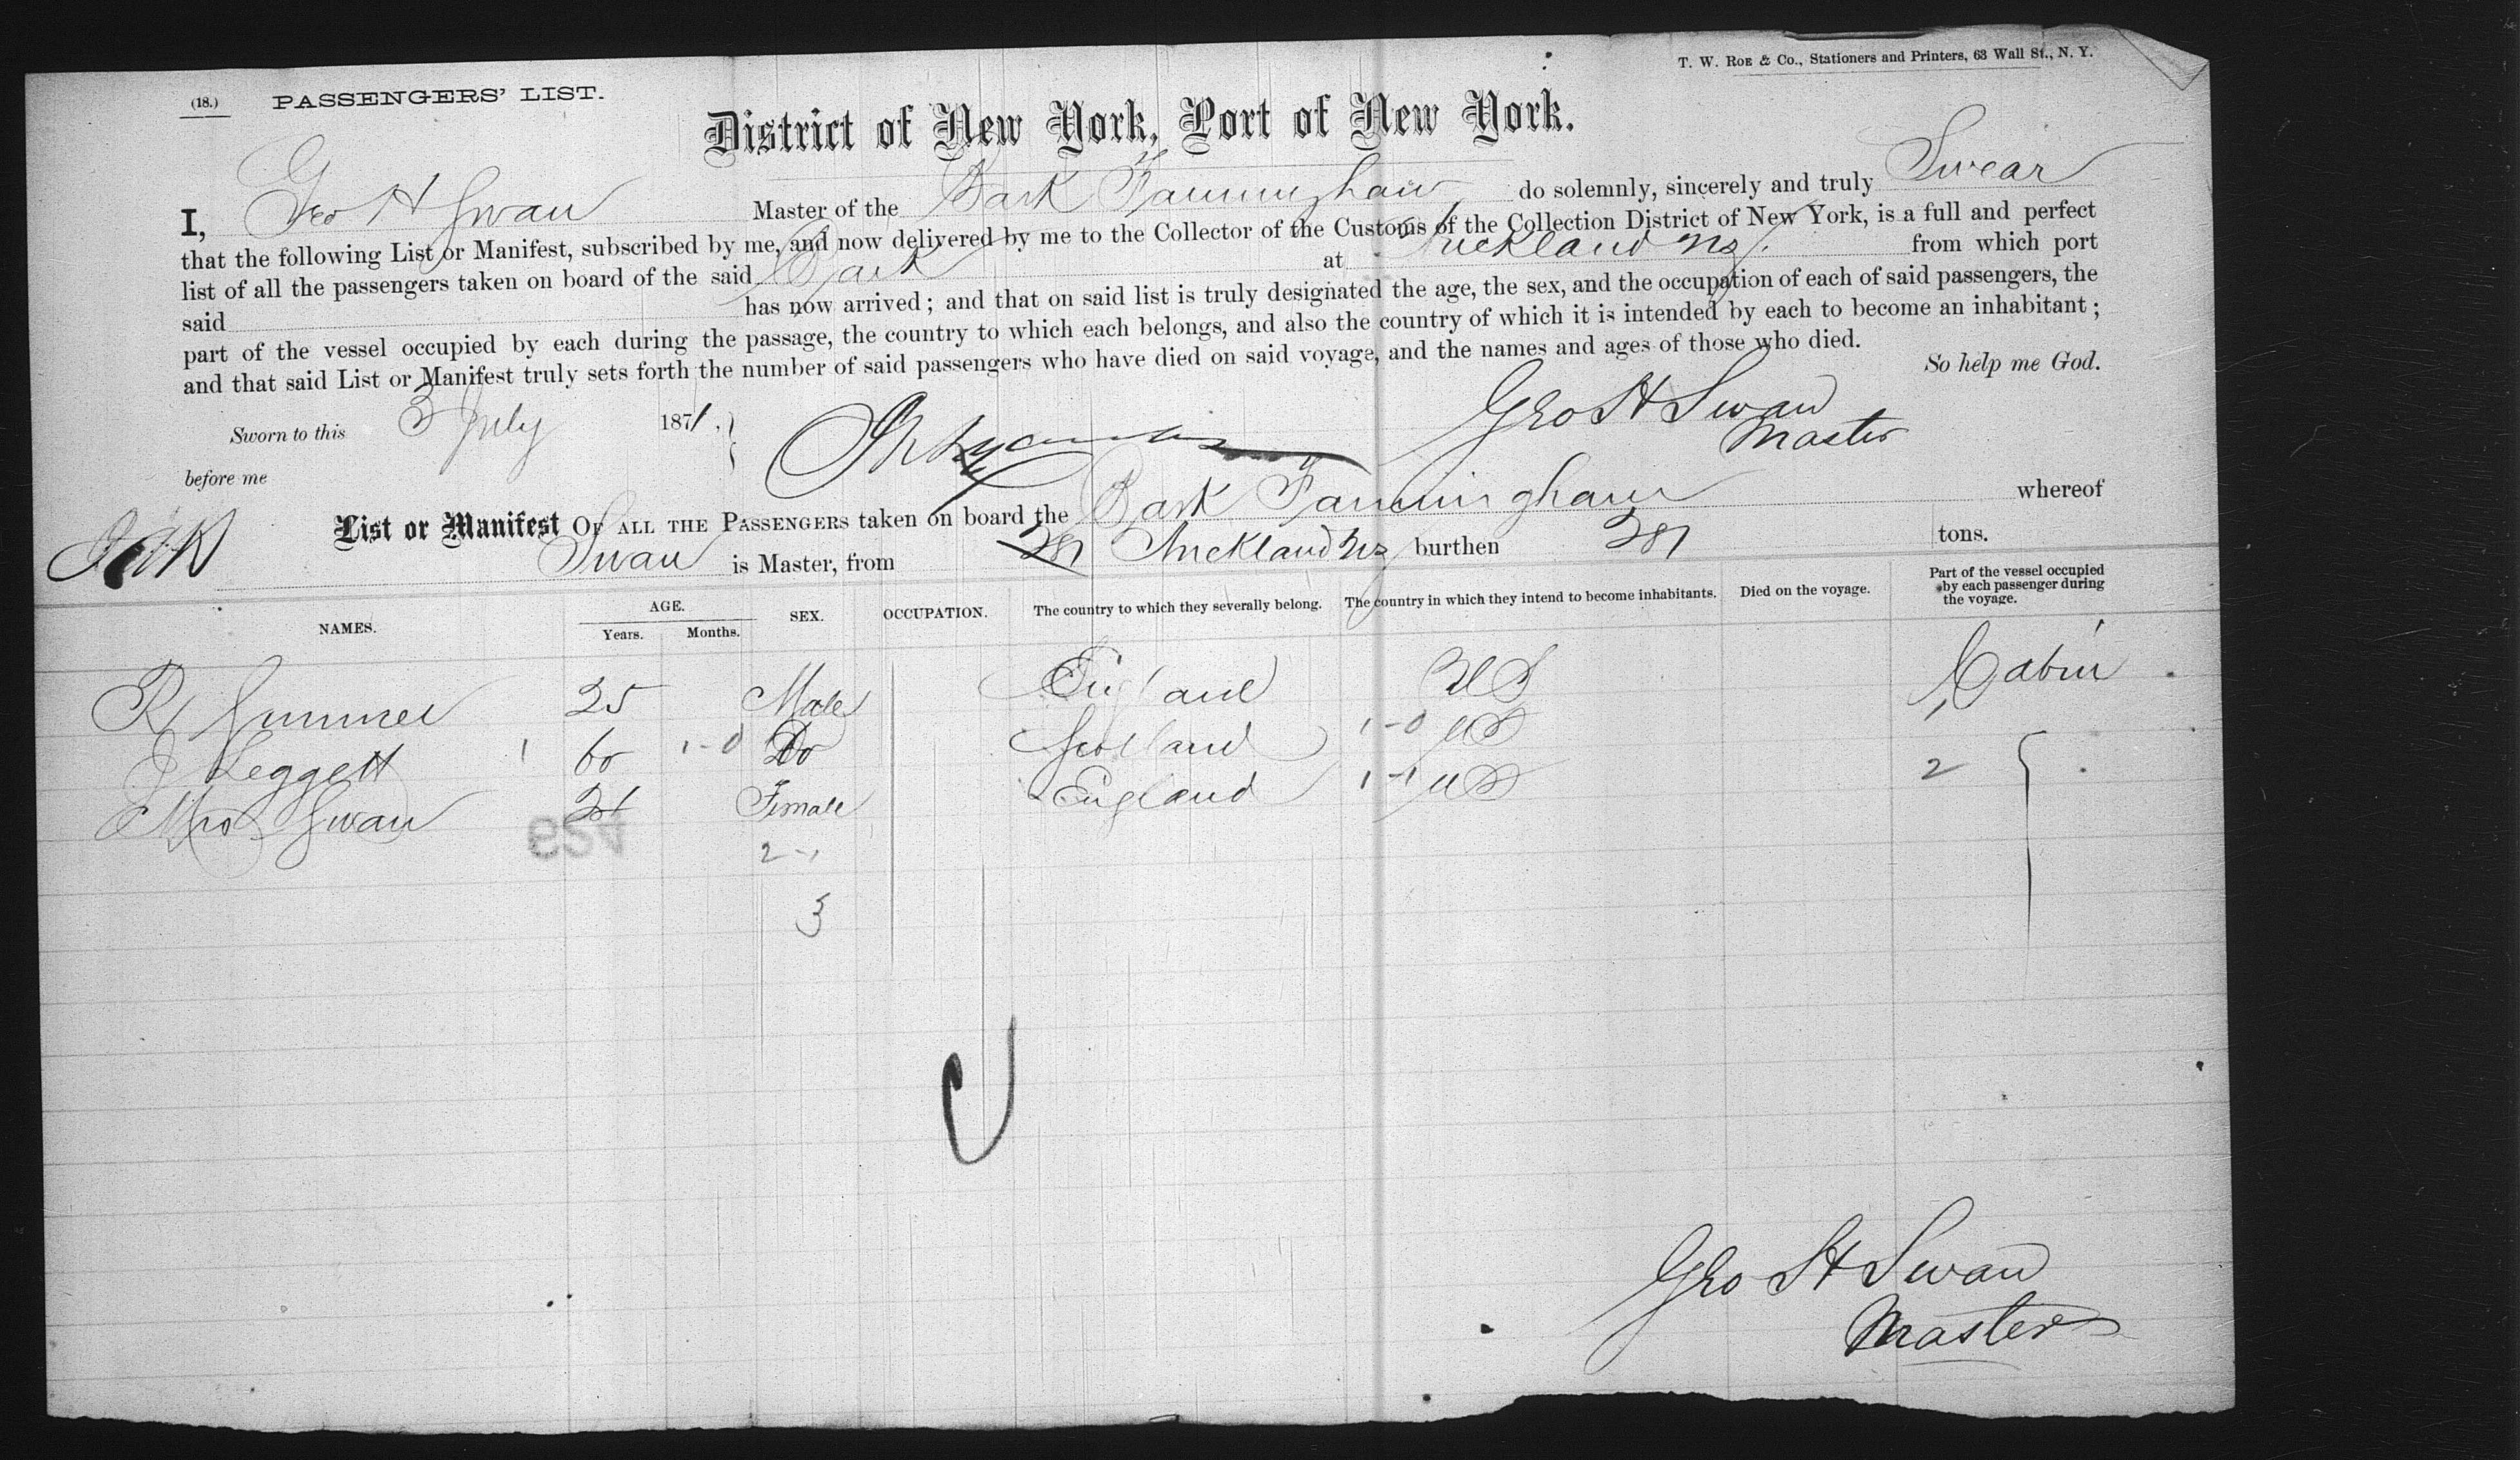 T. W. Roe & Co., Stationers and Printers, 63 Wall St., N. Y.
(18.) PASSENGERS' LIST.
District of New York, Port of New York.
I, Geo H Swan Master of the Bark do solemnly, sincerely and truly Swear
that the following List or Manifest, subscribed by me, and now delivered by me to the Collector of the Customs of the Collection District of New York, is a full and perfect
list of all the passengers taken on board of the said Bark at Auckland NZ. from which port
said has now arrived; and that on said list is truly designated the age, the sex, and the occupation of each of said passengers, the
part of the vessel occupied by each during the passage, the country to which each belongs, and also the country of which it is intended by each to become an inhabitant;
and that said List or Manifest truly sets forth the number of said passengers who have died on said voyage, and the names and ages of those who died.
So help me God.
Sworn to this 3 July 1871.
Geo H Swan
Master
before me
List or Manifest Of all the Passengers taken on board the Bark whereof
Swan is Master, from 387 Auckland NZ burthen 387 tons.
NAMES. AGE. Years. Months. SEX. OCCUPATION. The country to which they severally belong. The country in which they intend to become inhabitants. Died on the voyage. Part of the vessel occupied by each passenger during the voyage.
R 25 Male England US Cabin
J Leggett 1 60 1-0 Do Scotland 1-0 US
Mrs Swan Female England 1-1 US 2
2-1
3
Geo H Swan
Master